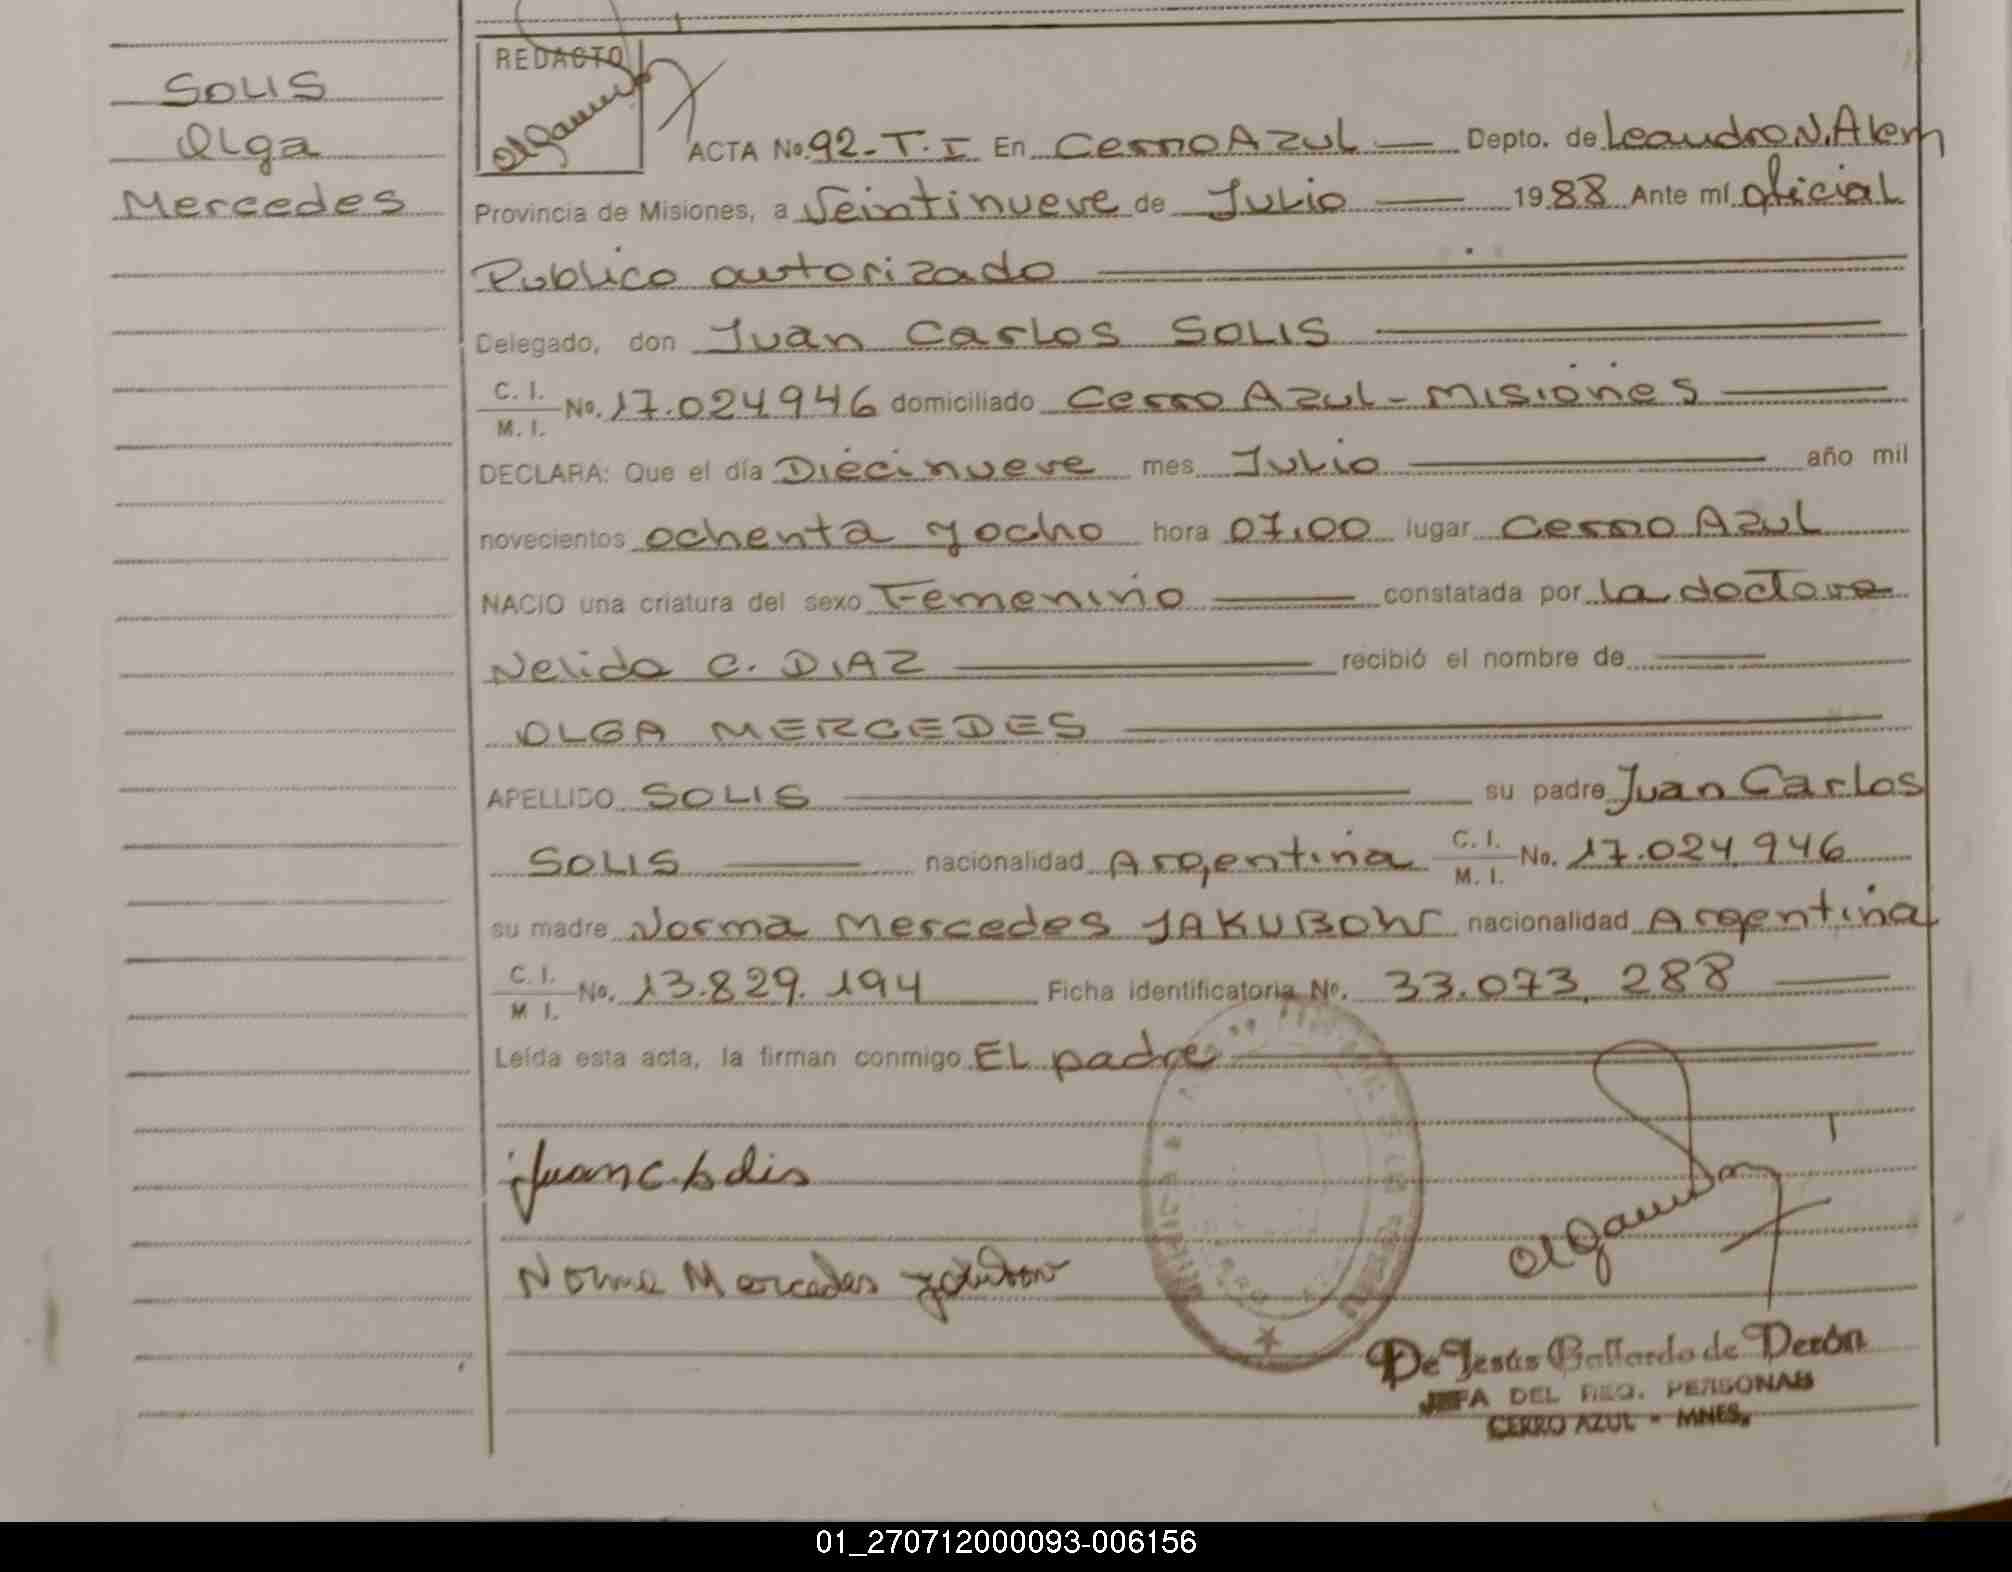 SOLIS
Olga
Mercedes
REDACTO
ACTA No. 92-T.I En Cerro Azul — Depto. de Leandro N. Alem
Provincia de Misiones, a Veintinueve de Julio — 1988 Ante mí oficial
Publico autorizado
Delegado, don Juan Carlos SOLIS
C. I.
M. I. No. 17.024946 domiciliado Cerro Azul - Misiones
DECLARA: Que el día Diecinueve mes Julio — año mil
novecientos ochenta y ocho hora 07,00 lugar Cerro Azul
NACIO una criatura del sexo Femenino — constatada por la doctora
Nelida C. DIAZ — recibió el nombre de
OLGA MERCEDES
APELLIDO SOLIS — su padre Juan Carlos
SOLIS — nacionalidad Argentina C. I. M. I. No. 17.024.946
su madre Norma Mercedes JAKUBOW nacionalidad Argentina
C. I.
M I. No. 13.829.194 Ficha identificatoria No. 33.073.288
Leída esta acta, la firman conmigo EL padre
Juan C. Solis
Norma Mercedes
De Jesús Gallardo de Derón
JEFA DEL REG. PERSONAS
CERRO AZUL - MNES.
01_270712000093-006156